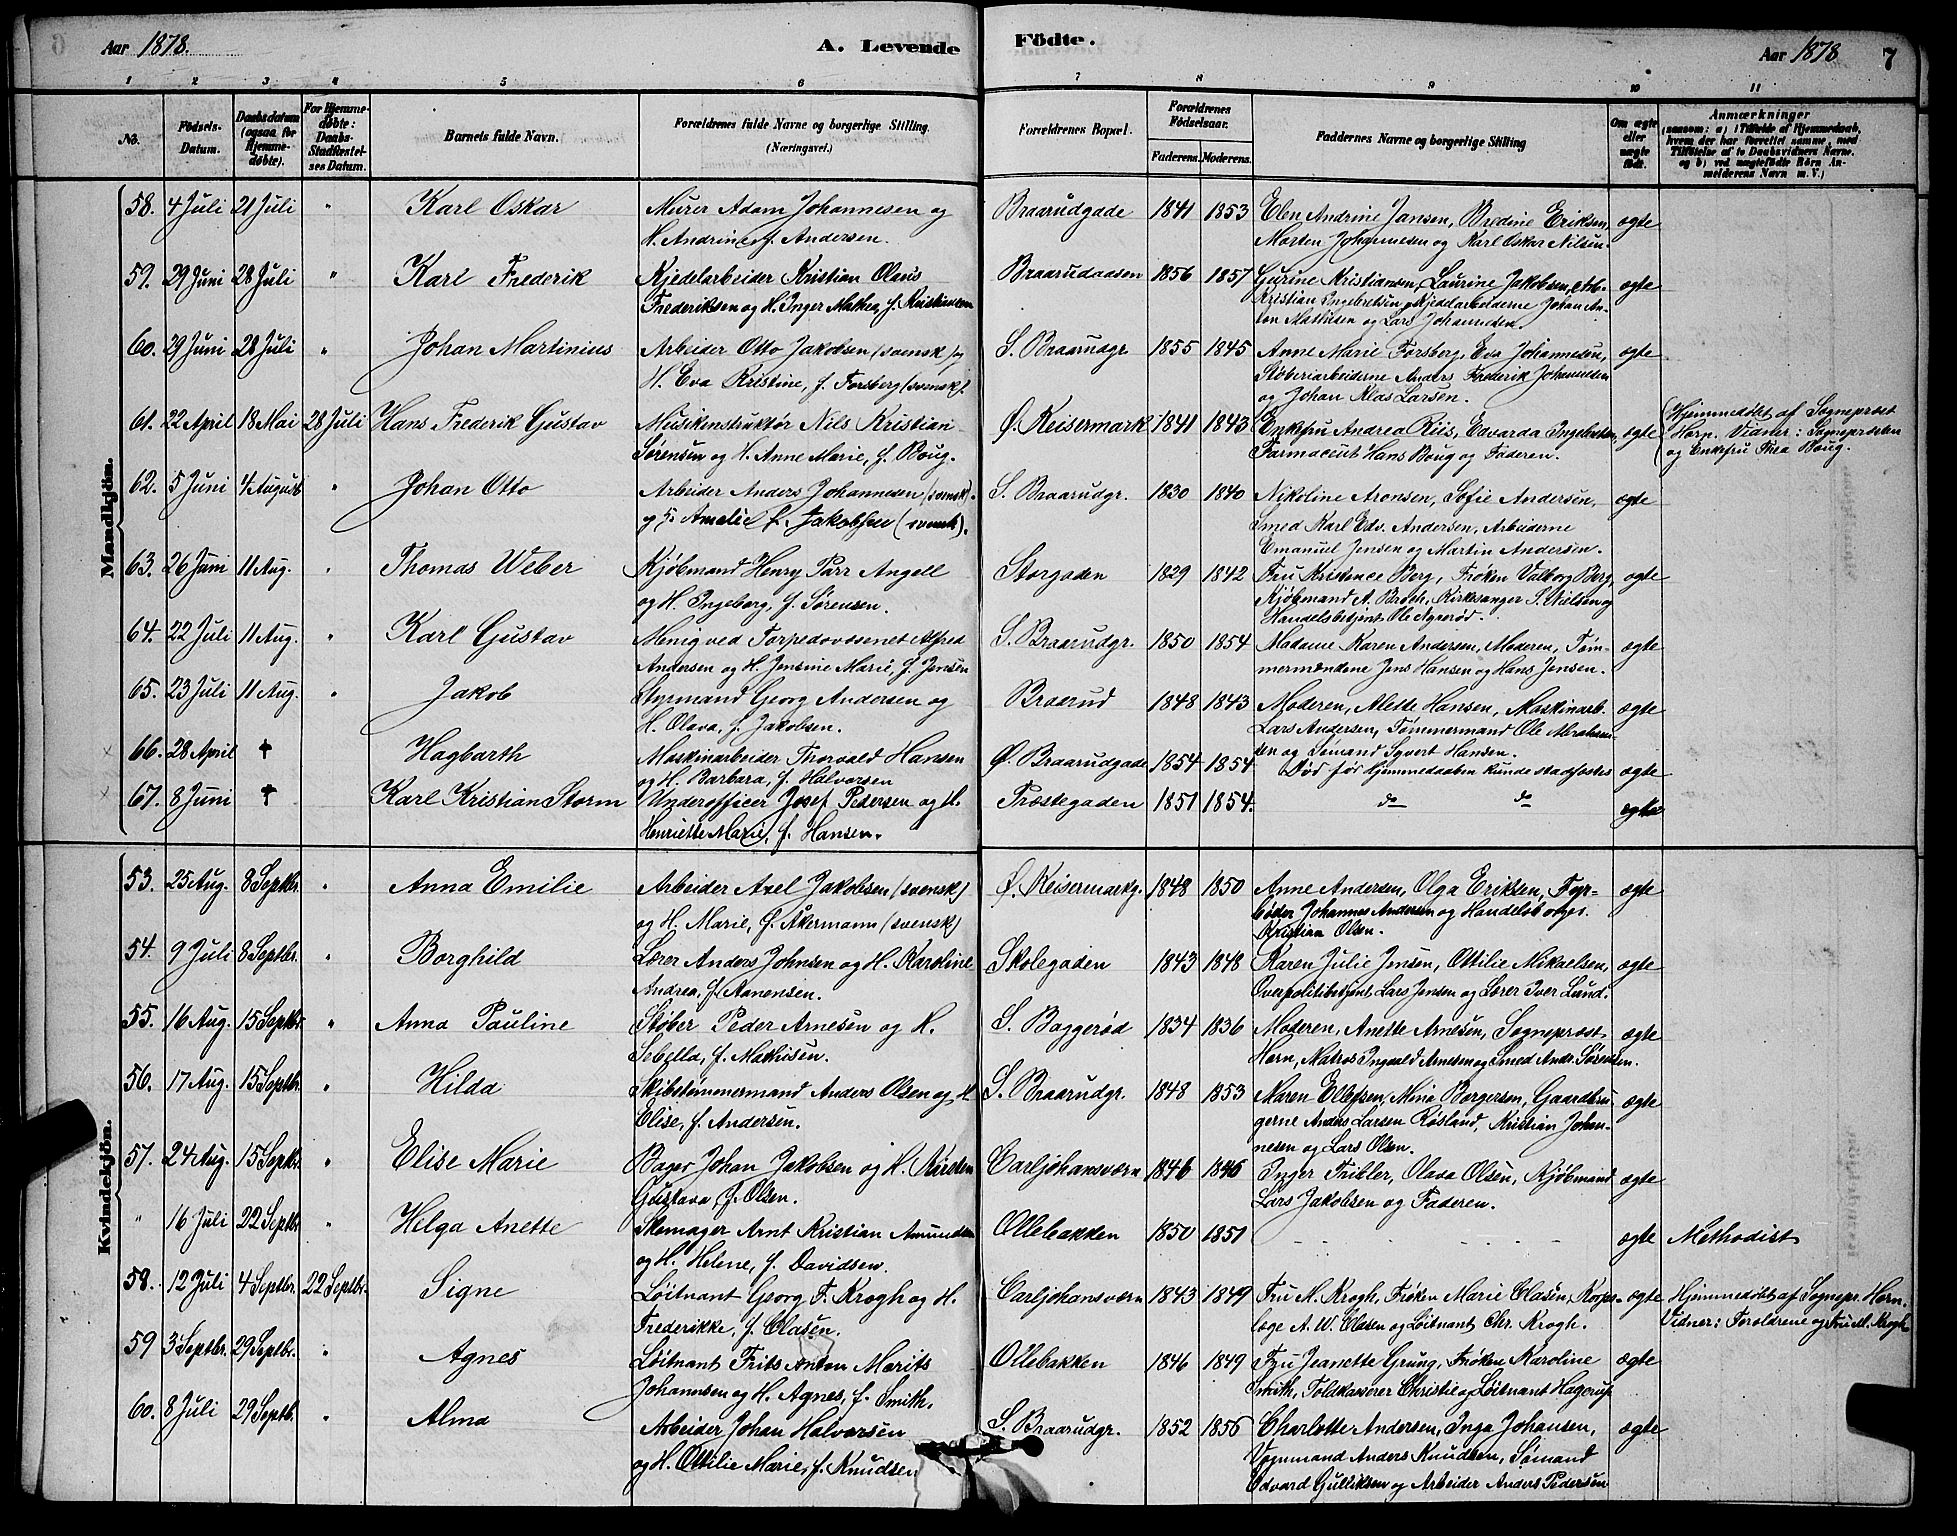 6
Aar 1878.
A. Levende
Födte.
Aar 1878
7
1 2 3 4 5 6 7 8 9 10 11
No.
Födsels-Datum.
Daabsdatum (ogsaa for Hjemme-döbte).
For Hjemme-döbte: Daabs-Stadfæstel-ses Datum.
Barnets fulde Navn.
Forældrenes fulde Navne og borgerlige Stilling. (Næringsvei.)
Forældrenes Bopæl.
Forældrenes Födselsaar.
Faderens. Moderens.
Faddernes Navne og borgerlige Stilling
Om ægte eller uægte födt.
Anmærkninger
(saasom: a) i Tilfælde af Hjemmedaab, hvem der har forrettet samme, med Tilföielse af to Daabsvidners Navne, og b) ved uægtefödte Börn Anmelderens Navn m. V.)
Mandkjön.
58. 4 Juli 21 Juli " Karl Oskar Murer Adam Johannesen og Braarudgade 1841 1853 Elen Andrine Jansen, Bredine Eriksen, ægte
H. Andrine f. Andersen. Morten Johannesen og Karl Oskar Nilsen.
59. 29 Juni 28 Juli " Karl Frederik Kjedelarbeider Kristian Olaus Braarudaasen 1856 1857 Gurine Kristiansen, Laurine Jakobsen, Arb. ægte
Frederiksen og H. Inger Mathea, f. Kristiansen Kristian Ingebretsen, Kjedelarbeiderne Johan An-
ton Mathisen og Lars Johannesen.
60. 29 Juni 28 Juli " Johan Martinius Arbeider Otto Jakobsen (svensk) og S. Braarudgr. 1855 1845 Anne Marie Forsberg, Eva Johannesen, ægte
H. Eva Kristine, f. Forsberg (svensk). Støberiarbeiderne Anders Frederik Johannesen
og Johan Klas Larsen.
61. 22 April 18 Mai 28 Juli Hans Frederik Gustav Musikinstruktør Nils Kristian Ø. Keisermark 1841 1843 Enkefru Andrea Riis, Edvarda Ingebretsen, ægte Hjemmedøbt af Sogneprest
Sørensen og H. Anne Marie, f. Boug. Farmaceut Hans Boug og Faderen. Horn. Vidner: Sognepresten
og Enkefru Thea Boug.
62. 5 Juni 4 August " Johan Otto Arbeider Anders Johannesen (svensk) S. Braarudgr. 1830 1840 Nikoline Aronsen, Sofie Andersen, ægte
og H. Amelie f. Jakobsen (svensk). Smed Karl Edv. Andersen, Arbeiderne
Emanuel Jensen og Martin Andersen.
63. 26 Juni 11 Aug. " Thomas Weber Kjøbmand Henry Parr Angell Storgaden 1829 1842 Fru Kristence Berg, Frøken Valborg Berg, ægte
og H. Ingeborg, f. Sørensen. Kjøbmand A. Broch, Kirkesanger P. Nielsen og
Handelsbetjent Ole Agerød.
64. 22 Juli 11 Aug. " Karl Gustav Menig ved Torpedovæsenet Alfred S. Braarudgr. 1850 1854 Madame Karen Andersen, Moderen, Tøm- ægte
Andersen og H. Jensine Marie, f. Jensen mermændene Jens Hansen og Hans Jensen.
65. 23 Juli 11 Aug. " Jakob Styrmand Georg Andersen og Braarud 1848 1843 Moderen, Alette Hansen, Maskinarb. ægte
H. Olava, f. Jakobsen. Lars Andersen, Tømmermand Ole Abraham-
sen og Sømand Syvert Hansen.
66. 28 April † Hagbarth Maskinarbeider Thorvald Hansen Ø. Braarudgade 1854 1854 Død før hjemmedaaben kunde stadfæstes ægte
og H. Barbara, f. Halvorsen
67. 8 Juni † Karl Kristian Storm Underofficer Josef Pedersen og H. Præstegaden 1851 1854. do do ægte
Henriette Marie, f. Hansen.
Kvindekjön.
53. 25 Aug. 8 Septbr. " Anna Emilie Arbeider Axel Jakobsen (svensk) Ø. Keisermarkg. 1848 1850 Anne Andersen, Olga Eriksen, Fyr- ægte
og H. Marie, f. Åkermann (svensk) bøder Johannes Andersen og Handelsbetjent
Kristian Olsen.
54. 9 Juli 8 Septbr. " Borghild Lærer Anders Johnsen og H. Karoline Skolegaden 1843 1848 Karen Julie Jensen, Ottilie Mikaelsen, ægte
Andrea, f. Aanensen. Overpolitibetjent Lars Jensen og Lærer Iver Lund.
55. 16 Aug. 15 Septbr. " Anna Pauline Støber Peder Arnesen og H. S. Baggerød 1834 1836 Moderen, Anette Arnesen, Sogneprest ægte
Sebella, f. Mathisen. Horn, Matros Ingvald Arnesen og Smed Andr. Sørensen.
56. 17 Aug. 15 Septbr. " Hilda Skibstømmermand Anders Olsen og H. S. Braarudgr. 1848 1853 Maren Ellefsen, Mina Borgersen, Gaardbru- ægte
Elise, f. Andersen. gerne Anders Larsen Røsland, Kristian Johan-
nesen og Lars Olsen.
57. 24 Aug. 15 Septbr. " Elise Marie Bager Johan Jakobsen og H. Kirsten Carljohansværn 1846 1846 Inger Tribler, Olava Olsen, Kjøbmand ægte
Gustava f. Olsen. Lars Jakobsen og Faderen.
" 16 Juli 22 Septbr " Helga Anette Skomager Arnt Kristian Amundsen Ollebakken 1850 1851 ægte Methodist
og H. Helene, f. Davidsen.
58. 12 Juli 4 Septbr. 22 Septbr. Signe Løitnant Georg F. Krogh og H. Carljohansværn 1843 1849 Fru M. Krogh, Frøken Marie Olasen, Korps- ægte Hjemmedøbt af Sognepr. Horn.
Frederikke, f. Clasen. læge A. W. Clasen og Løitnant Chr. Krogh. Vidner: Forældrene og Fru M. Krogh
59 3 Septbr. 29 Septbr. " Agnes Løitnant Frits Anton Morits Ollebakken 1846 1849 Fru Jeanette Grung, Frøken Karoline ægte
Johannsen og H. Agnes, f. Smith. Smith, Toldkasserer Christie og Løitnant Hagerup
60. 8 Juli 29 Septb. " Alma Arbeider Johan Halvorsen S. Braarudgr. 1852 1856 Charlotte Andersen, Inga Johansen, ægte
og H. Ottilie Marie, f. Knudsen Vognmand Anders Knudsen, Sømand
Edvard Gulliksen og Arbeider Anders Pedersen